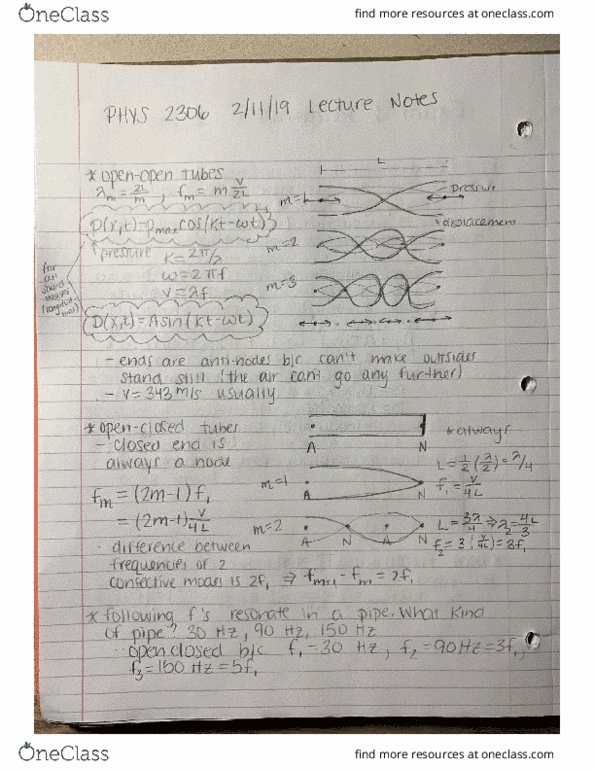 OneClass
find more resources at oneclass.com
PHYS 2306 2/11/19 Lecture Notes
* open-open tubes
λm = 2L/m, fm = m v/2L
L
m=1
pressure
displacement
P(x,t)=Pmax cos(kt-ωt)
↑ pressure
m=2
K = 2π/λ
ω = 2πf
m=3
v = λf
for all sound waves
D(x,t) = A sin(kt-ωt)
- ends are anti-nodes b/c can't make outsides
stand still (the air can't go any further)
- v = 343 m/s usually
* open-closed tubes
- closed end is
always a node
A N
* always
L = 1/2 (λ/2) = λ/4
f1 = v/4L
m=1
A N
fm = (2m-1) f1
= (2m-1) v/4L
m=2
A N A N
L = 3λ/4 ⇒ λ2 = 4L/3
f2 = 3 (v/4L) = 3f1
· difference between
frequencies of 2
consective modes is 2f1 ⇒ fm+1 - fm = 2f1
* following f's resonate in a pipe. What kind
of pipe? 30 Hz, 90 Hz, 150 Hz
open closed b/c f1 = 30 Hz, f2 = 90 Hz = 3f1,
f3 = 150 Hz = 5f1
OneClass
find more resources at oneclass.com